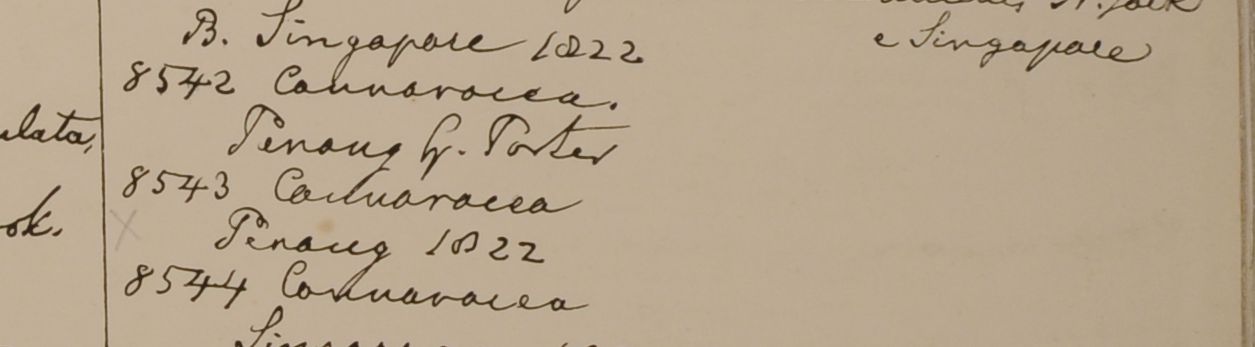 B. Singapore 1822
8542 Connaracea.
Penang G. Porter
8543 Connaracea
Penang 1822
8544 Connaracea
ulata,
ok.
e Singapore